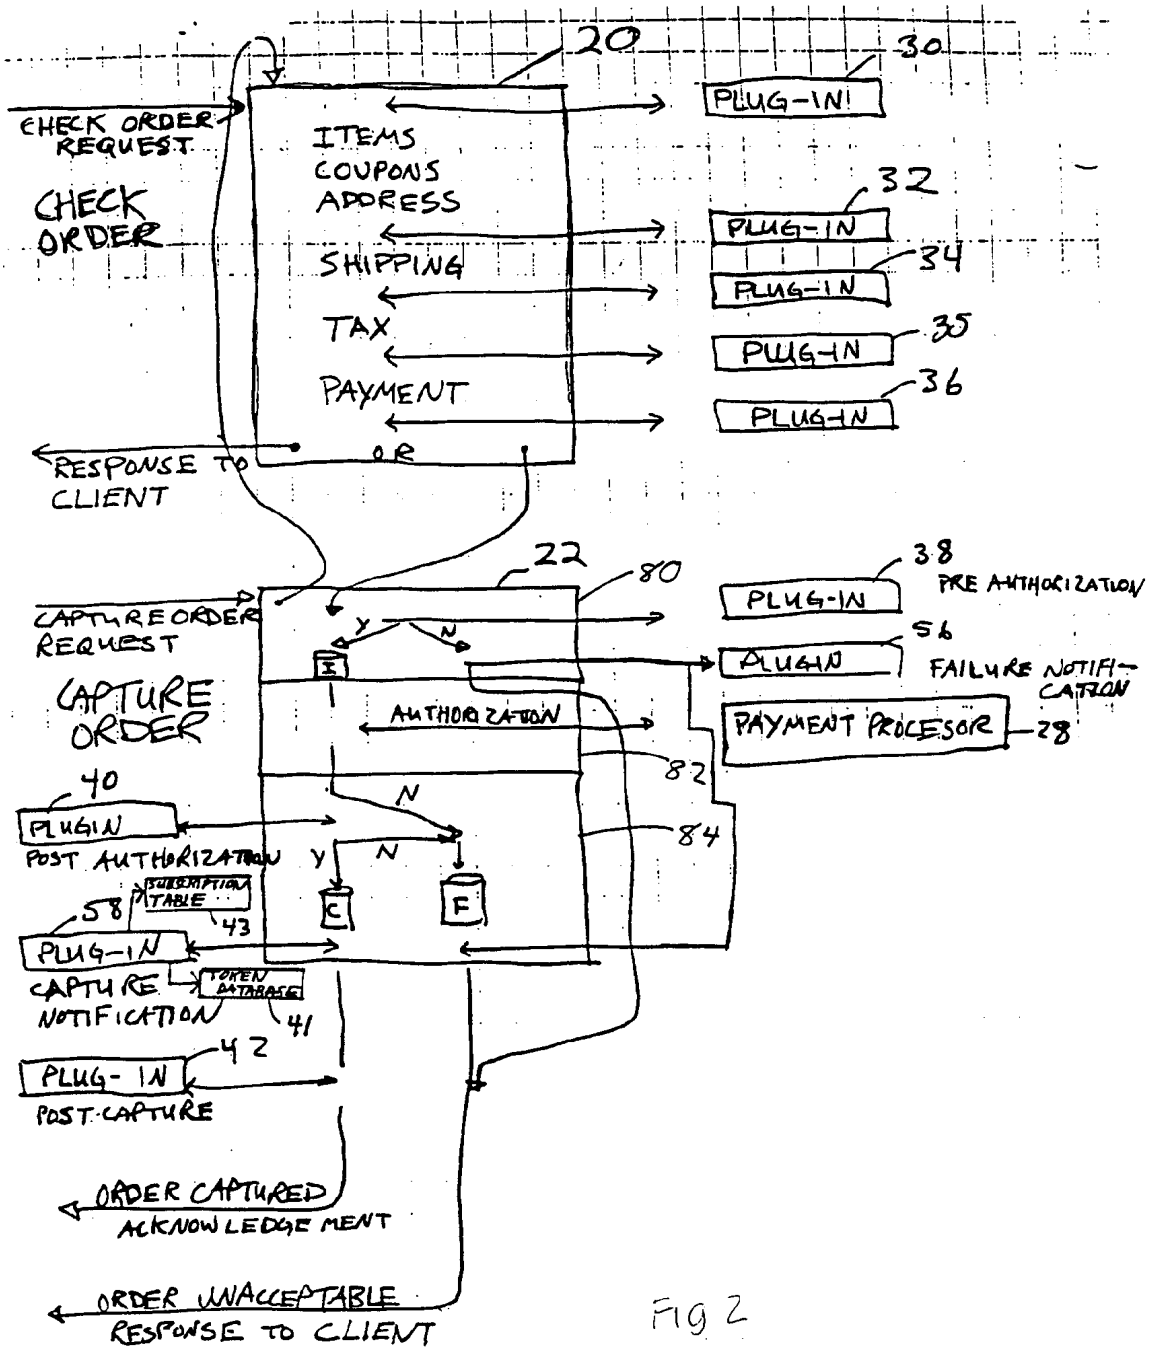 20
30
PLUG-IN
CHECK ORDER
REQUEST
ITEMS
COUPONS
ADDRESS
CHECK
ORDER
32
PLUG-IN
SHIPPING
34
PLUG-IN
TAX
35
PLUG-IN
PAYMENT
36
PLUG-IN
OR
RESPONSE TO
CLIENT
22
80
38
PRE AUTHORIZATION
PLUG-IN
CAPTURE ORDER
REQUEST
Y
N
I
56
PLUGIN
FAILURE NOTIFI-
CATION
CAPTURE
ORDER
AUTHORIZATION
PAYMENT PROCESOR
28
82
40
PLUGIN
N
84
POST AUTHORIZATION
Y
N
SUBSCRIPTION
TABLE
43
C
F
58
PLUG-IN
CAPTURE
NOTIFICATION
TOKEN
DATABASE
41
42
PLUG-IN
POST-CAPTURE
ORDER CAPTURED
ACKNOWLEDGEMENT
ORDER UNACCEPTABLE
RESPONSE TO CLIENT
Fig 2